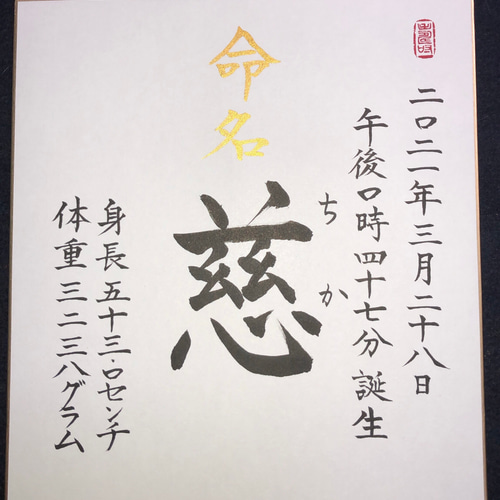 二〇二一年三月二十八日
午後〇時四十七分誕生
命名
慈
ちか
身長五十三.〇センチ
体重三二三八グラム